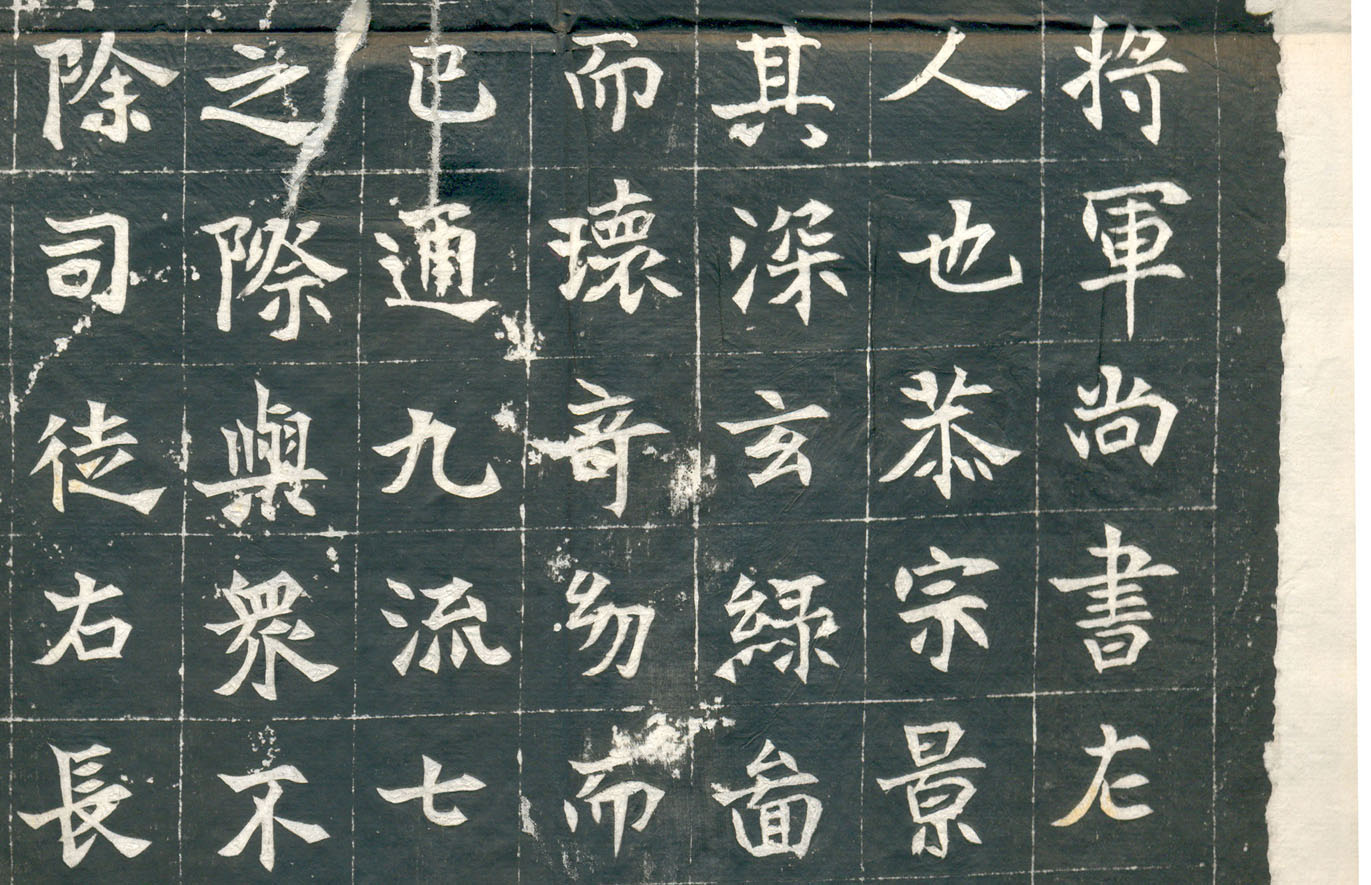 將軍尚書左
人也恭宗景
其深玄綠啚
而瓌竒幼而
已通九流七
之際與衆不
除司徒右長